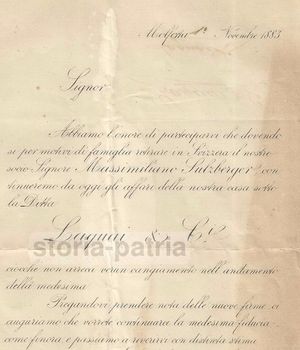 Molfetta 1º Novembre 1883
Signor
Abbiamo l'onore di parteciparvi che dovendo
si per motivi di famiglia ritirare in Svizzera il nostro
socio Signore Massimiliano Sulzberger, con
tinueremo da oggi gli affari della nostra casa sotto
la Ditta
Laguai & Cº
storia-patria
ciocchè non arreca verun cangiamento nell'andamento
della medesima
Pregandovi prendere nota delle nuove firme, ci
auguriamo che vorrete continuarci la medesima fiducia
come finora, e passiamo a riverirvi con distinta stima